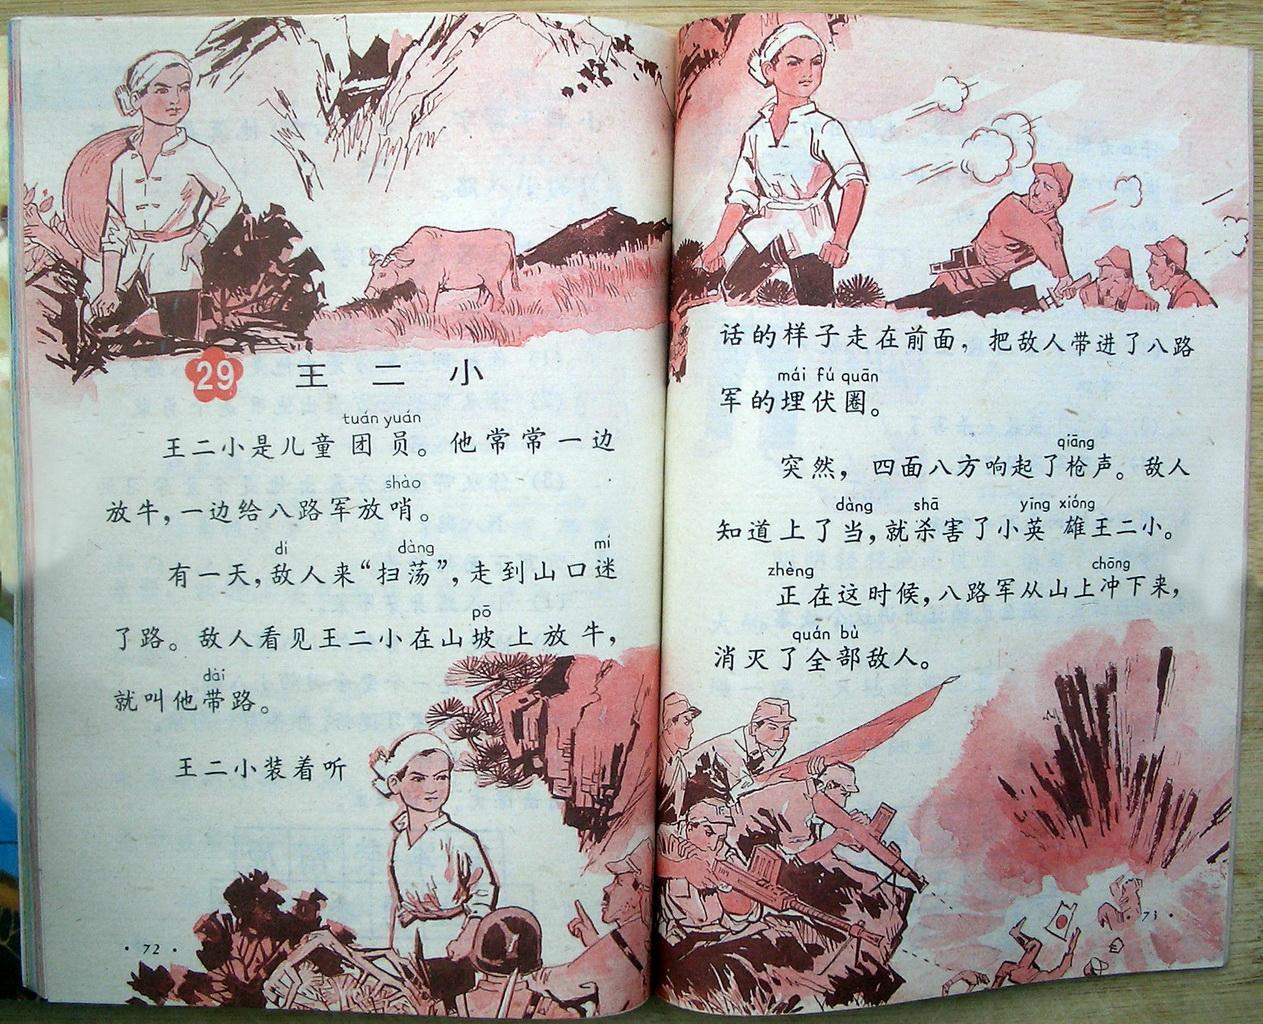 29 王二小
tuán yuán
王二小是儿童团员。他常常一边
shào
放牛，一边给八路军放哨。
dí dàng mí
有一天，敌人来“扫荡”，走到山口迷
pō
了路。敌人看见王二小在山坡上放牛，
dài
就叫他带路。
王二小装着听
·72·
话的样子走在前面，把敌人带进了八路
mái fú quān
军的埋伏圈。
qiāng
突然，四面八方响起了枪声。敌人
dàng shā yīng xióng
知道上了当，就杀害了小英雄王二小。
zhèng chōng
正在这时候，八路军从山上冲下来，
quán bù
消灭了全部敌人。
·73·